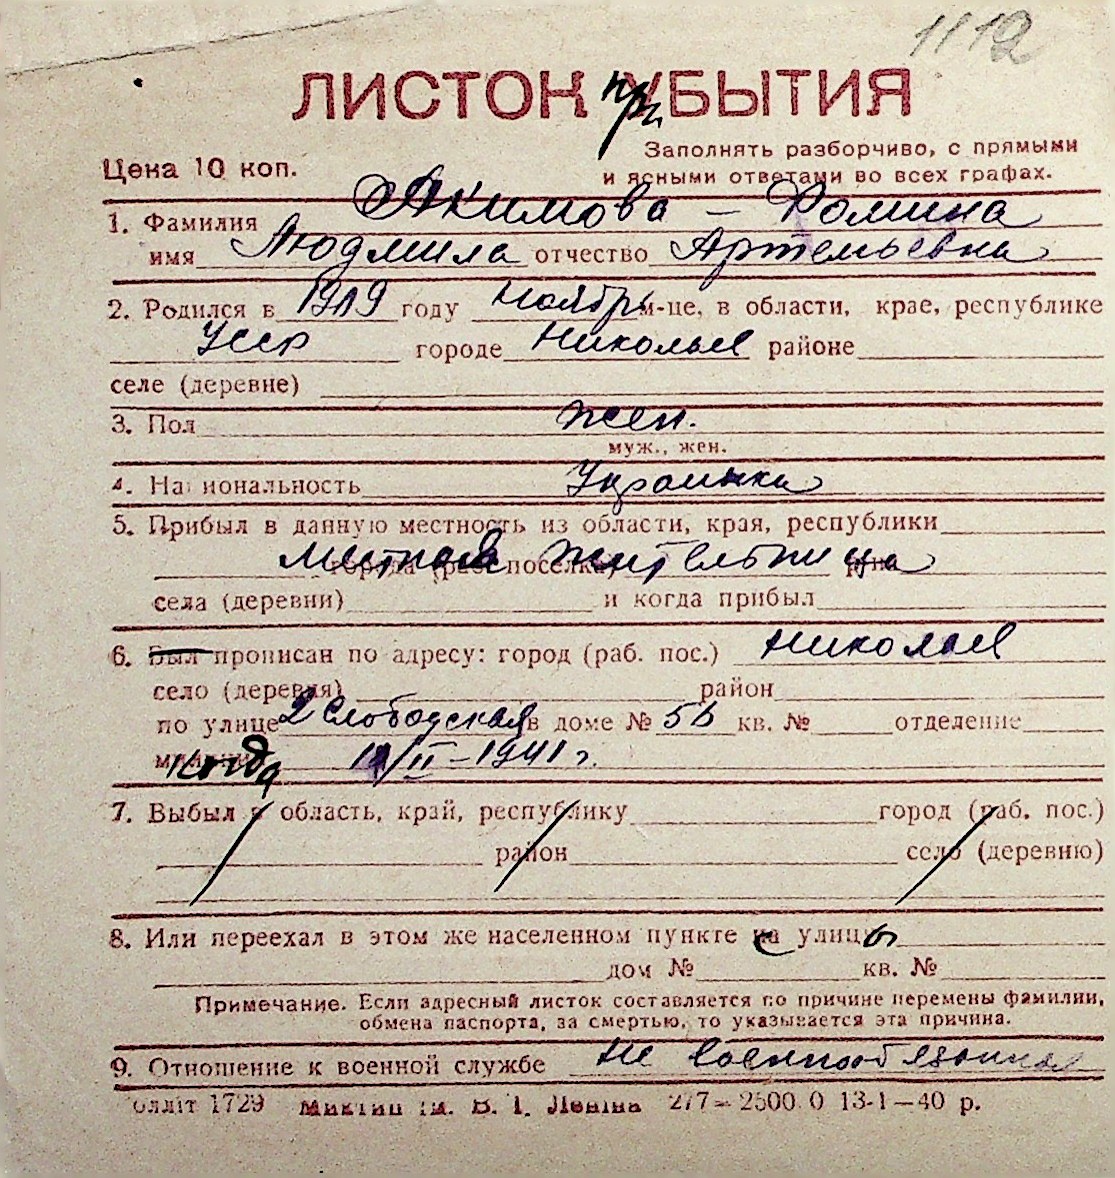 1112
ЛИСТОК при УБЫТИЯ
Заполнять разборчиво, с прямыми
Цена 10 коп. и ясными ответами во всех графах.
1. Фамилия Акимова – Фомина
имя Людмила отчество Артемьевна
2. Родился в 1919 году Ноябрь м-це, в области, крае, республике
Усср городе Николаев районе
селе (деревне)
3. Пол жен.
муж., жен.
4. Национальность Украинка
5. Прибыл в данную местность из области, края, республики
города (раб. поселка) Местная жительница
села (деревни) и когда прибыл
6. Был прописан по адресу: город (раб. пос.) Николаев
село (деревня) район
по улице 2 Слободская в доме № 5б кв. № отделение
когда 11/II – 1941 г.
7. Выбыл в область, край, республику город (раб. пос.)
район село (деревню)
8. Или переехал в этом же населенном пункте с улицы
дом № кв. №
Примечание. Если адресный листок составляется по причине перемены фамилии,
обмена паспорта, за смертью, то указывается эта причина.
9. Отношение к военной службе не военнообязанная
1729 ім. В. І. Леніна 277–2500 0 13-1–40 р.